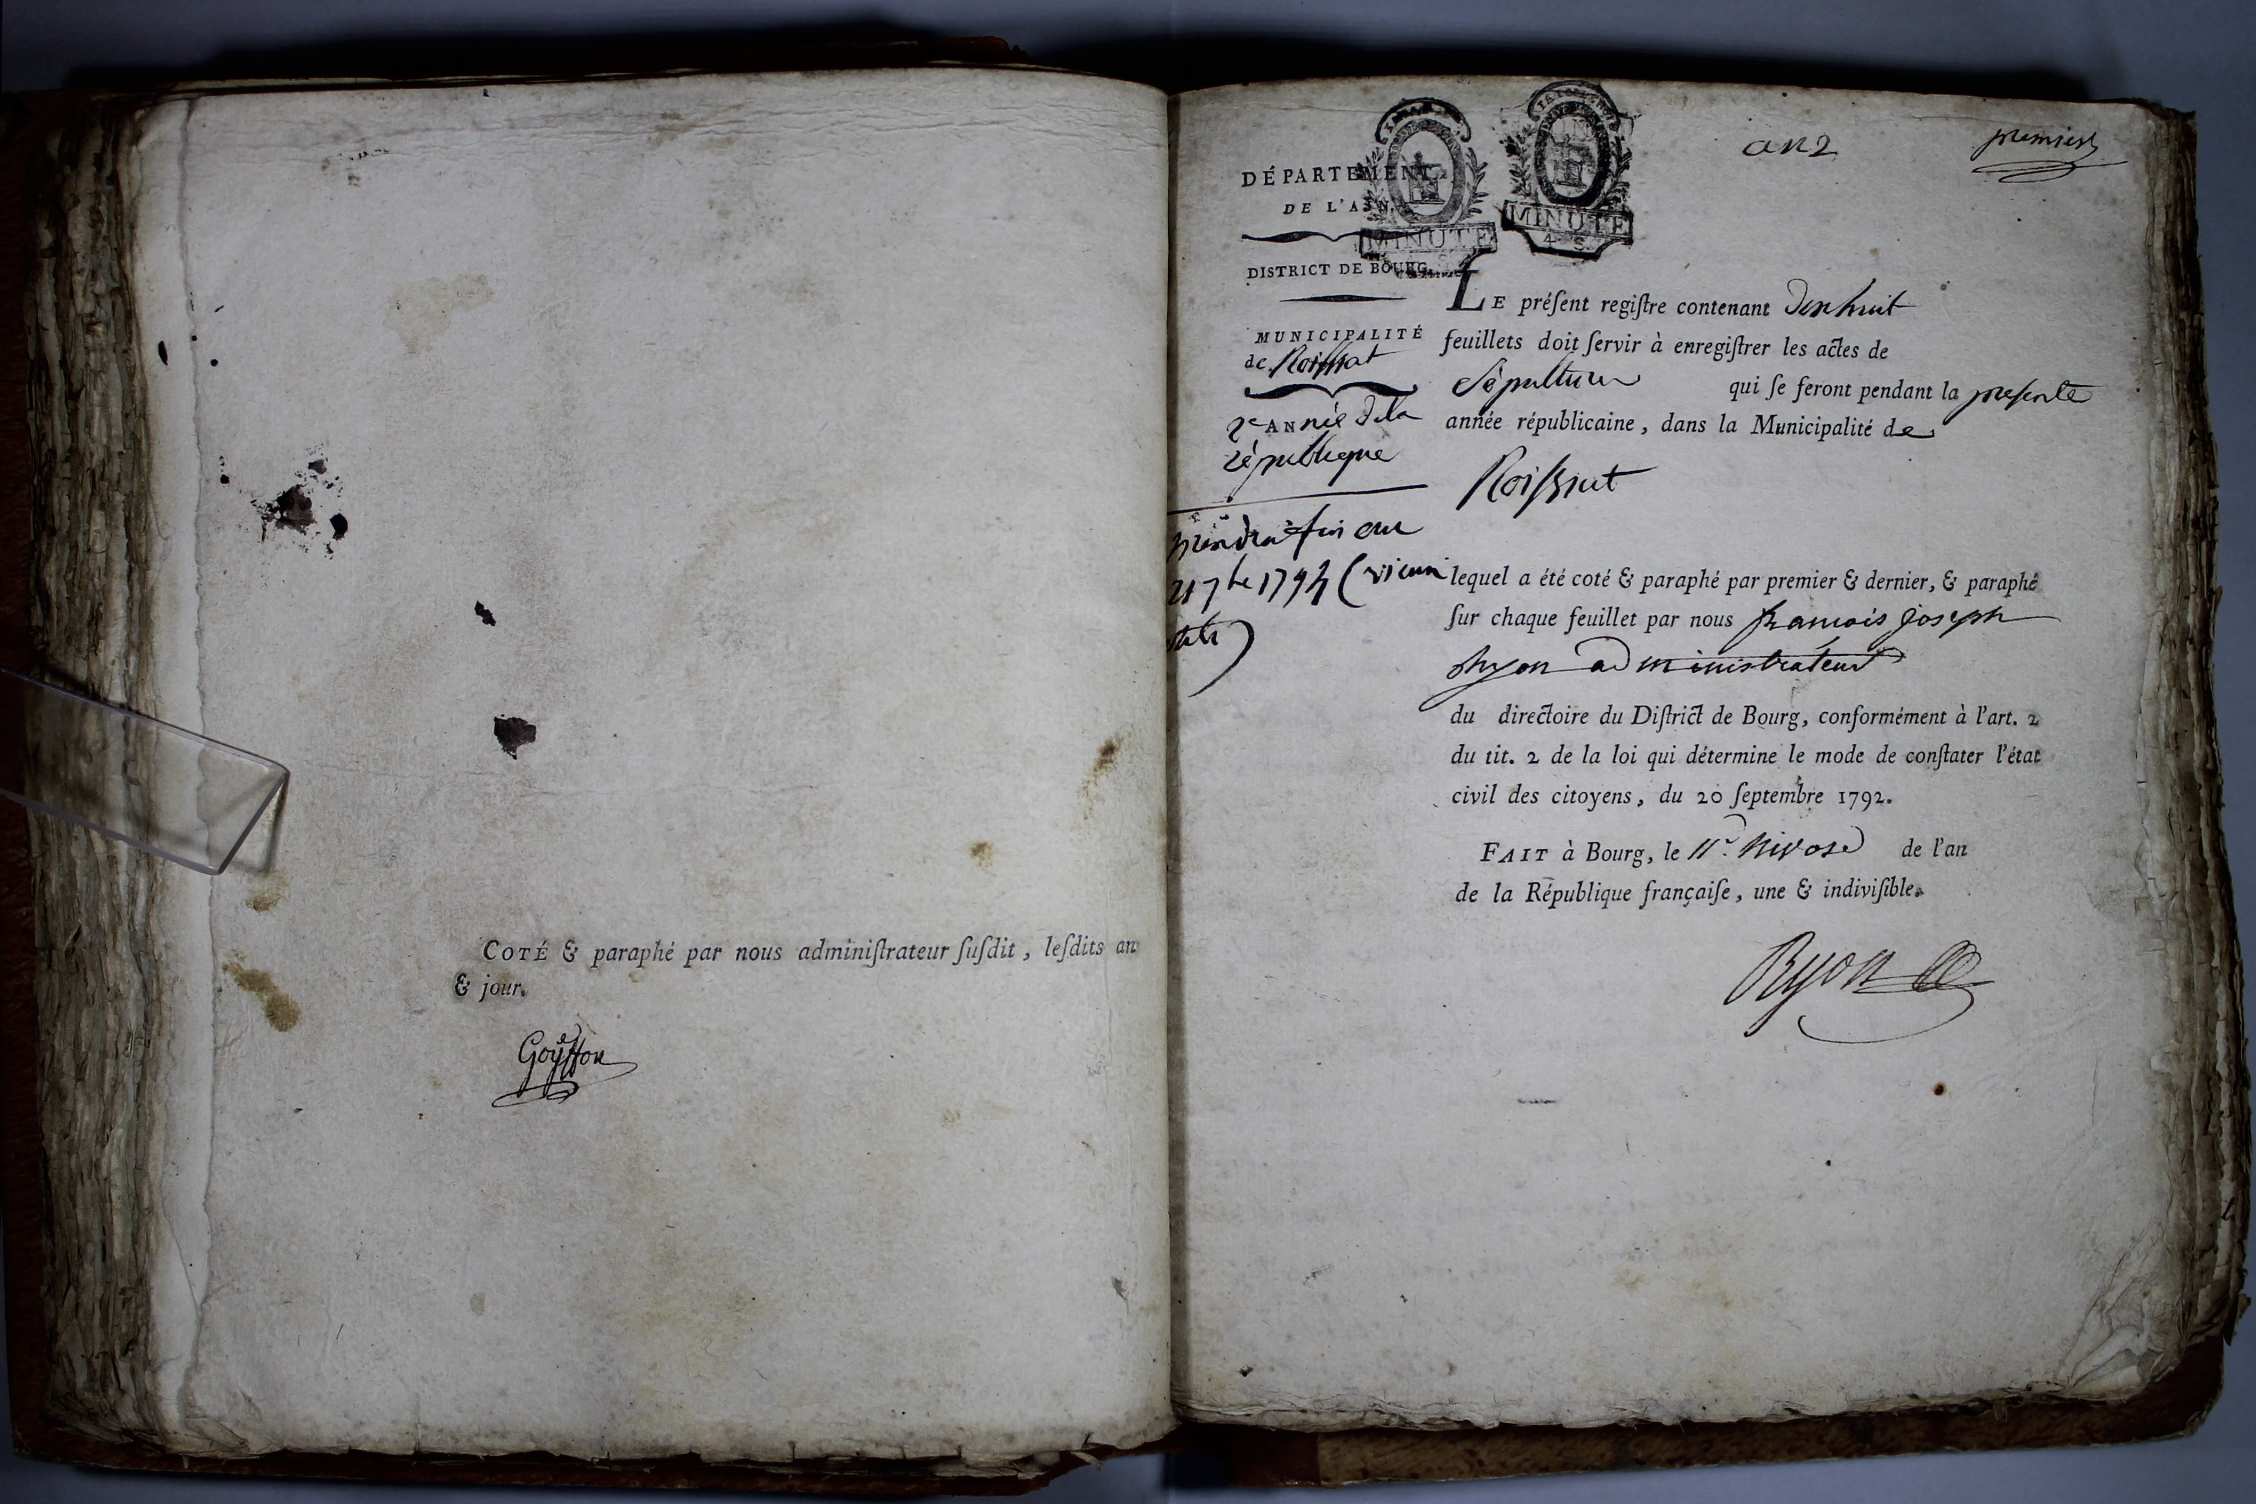 COTÉ & paraphé par nous adminiſtrateur ſuſdit, leſdits an
& jour.
Goyffon
an 2
premier
DÉPARTEMENT
DE L'AIN.
MINUTE
MINUTE
4 S
DISTRICT DE BOURG.
MUNICIPALITÉ
de Roissiat
2e ANnée de la
république
prendra fin au
21 7bre 1794 (vieux
stile)
LE préſent regiſtre contenant dix huit
feuillets doit ſervir à enregiſtrer les actes de
Sépulture qui ſe feront pendant la preſente
année républicaine, dans la Municipalité de
Roissiat
lequel a été coté & paraphé par premier & dernier, & paraphé
ſur chaque feuillet par nous francois joseph
Ryon administrateur
du directoire du Diſtrict de Bourg, conformément à l'art. 2
du tit. 2 de la loi qui détermine le mode de conſtater l'état
civil des citoyens, du 20 ſeptembre 1792.
FAIT à Bourg, le 11e. Nivose de l'an
de la République françaiſe, une & indiviſible.
Ryon